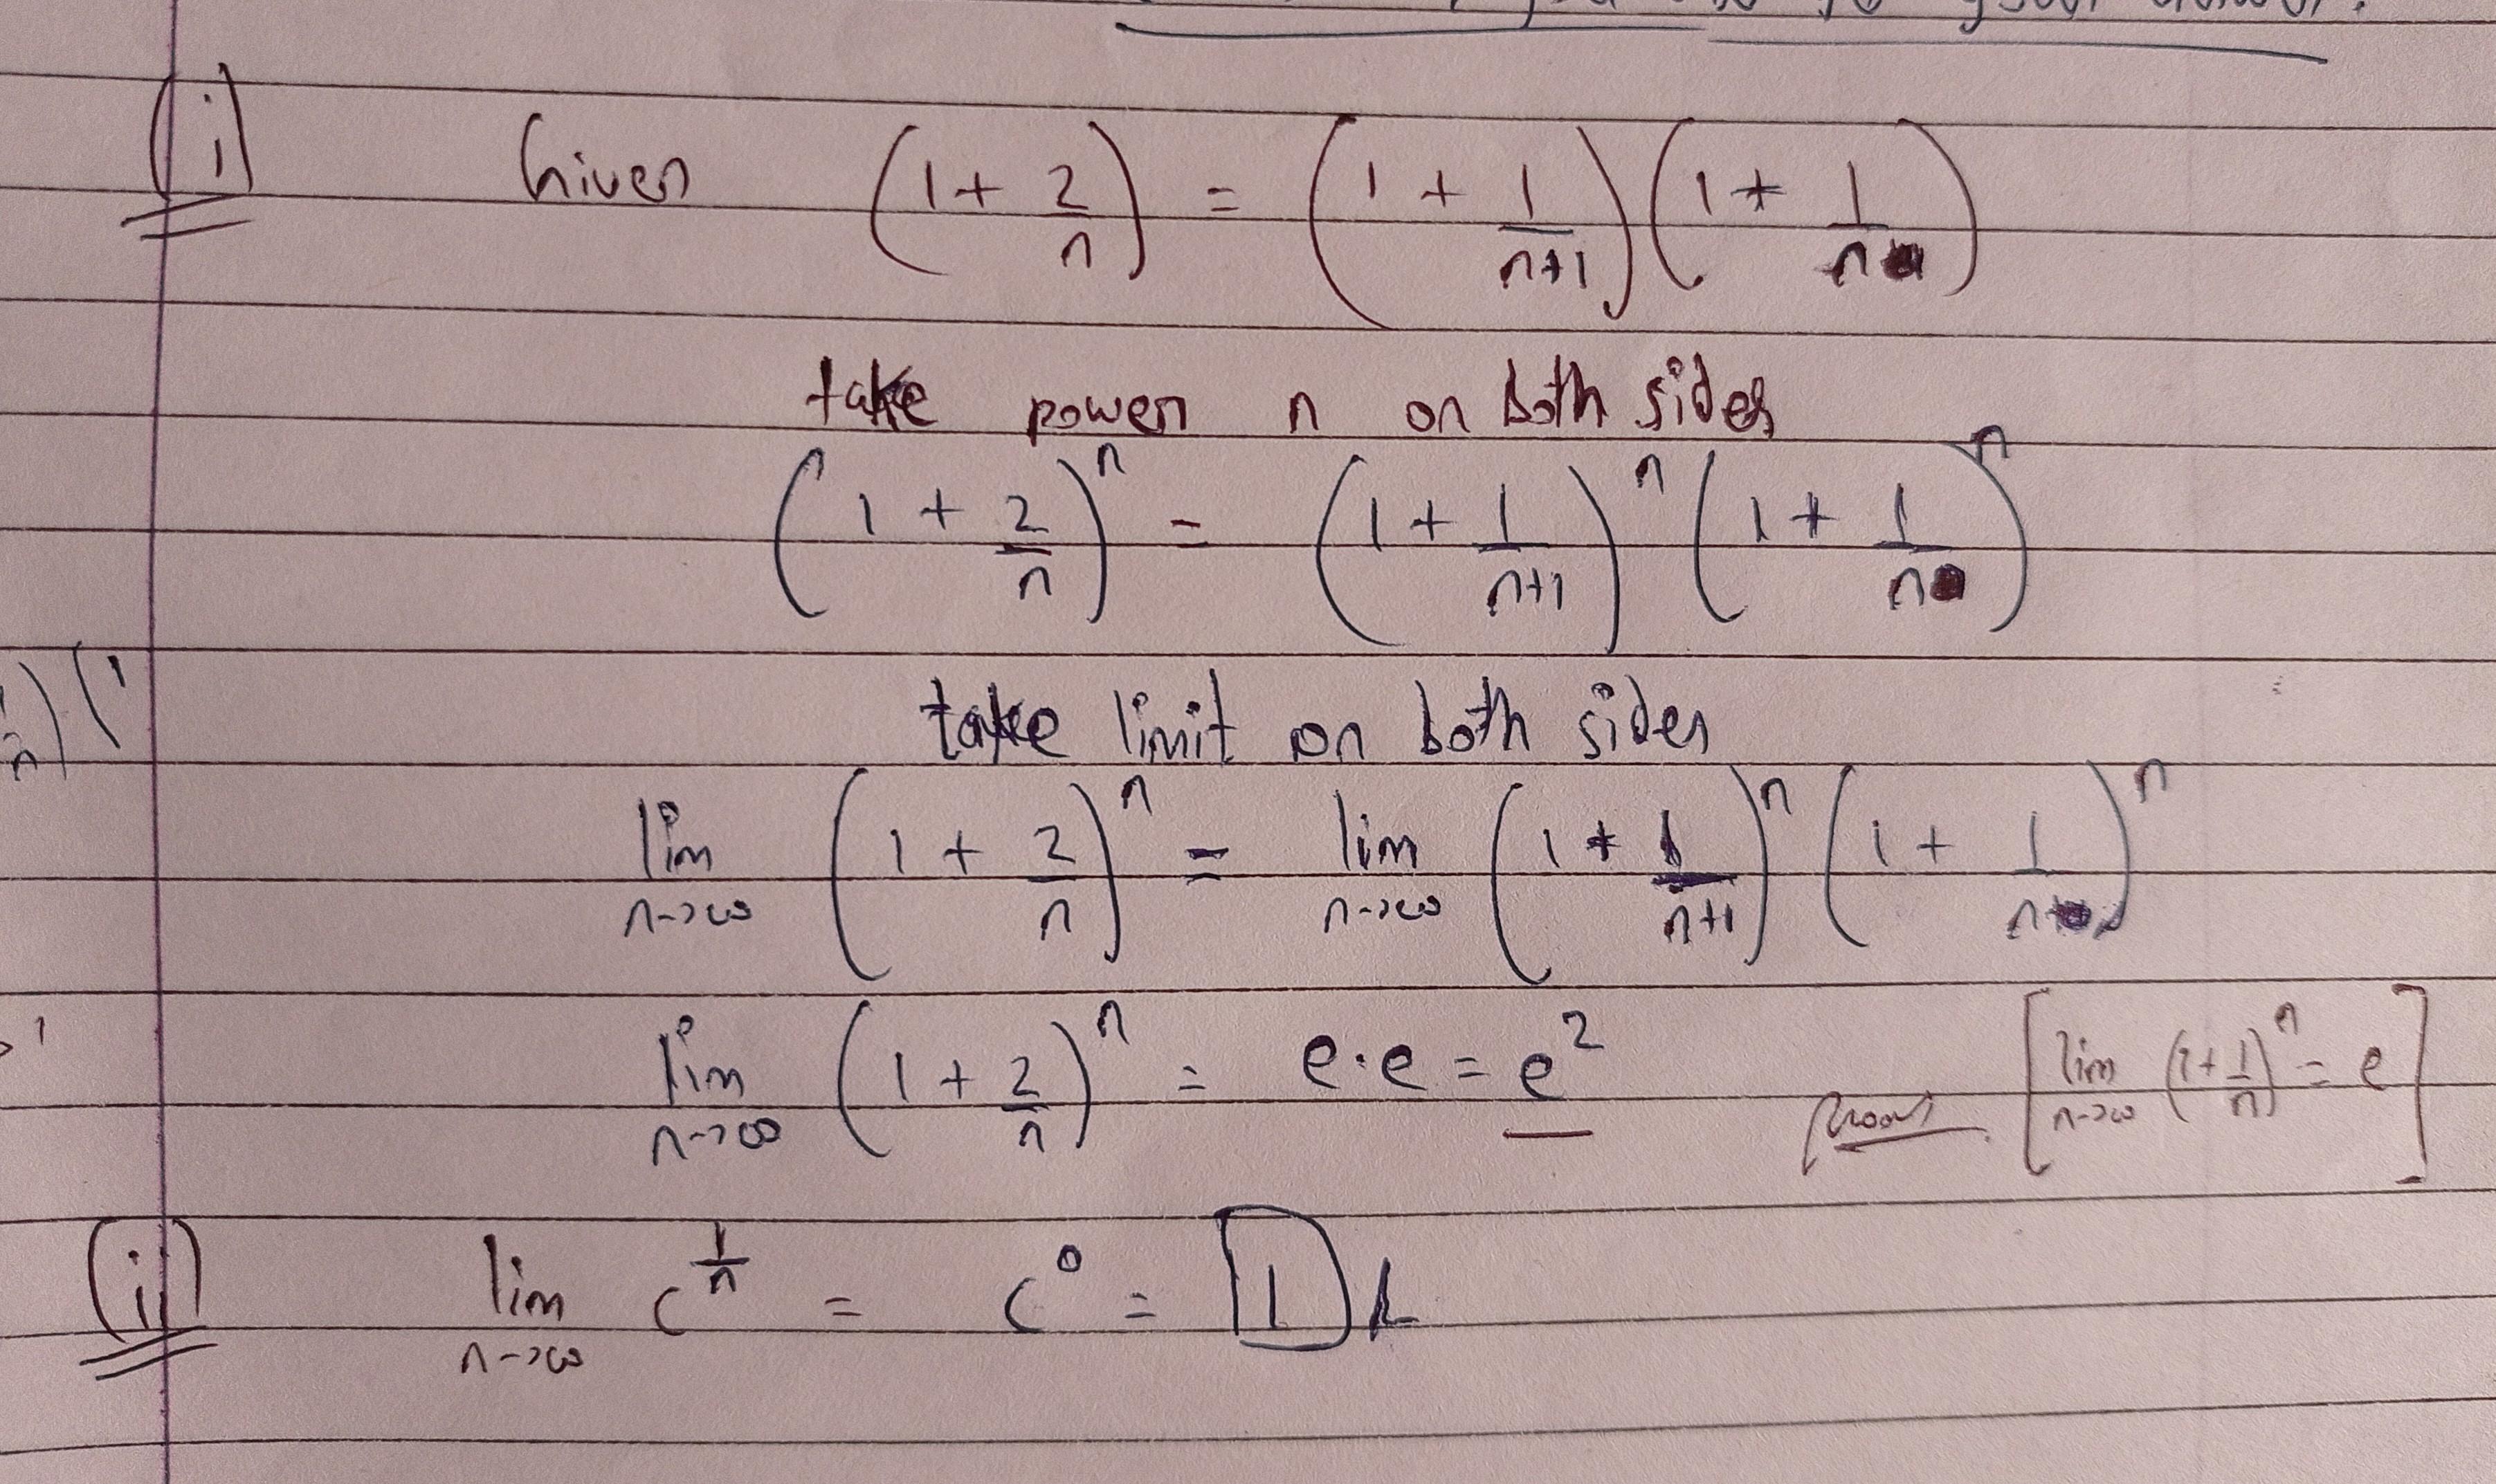 (i) Given (1 + 2/n) = (1 + 1/(n+1)) (1 + 1/n)
take power n on both sides
(1 + 2/n)^n = (1 + 1/(n+1))^n (1 + 1/n)^n
take limit on both sides
lim n→∞ (1 + 2/n)^n = lim n→∞ (1 + 1/(n+1))^n (1 + 1/n)^n
lim n→∞ (1 + 2/n)^n = e·e = e² [lim n→∞ (1 + 1/n)^n = e]
(ii) lim n→∞ c^(1/n) = c^0 = 1